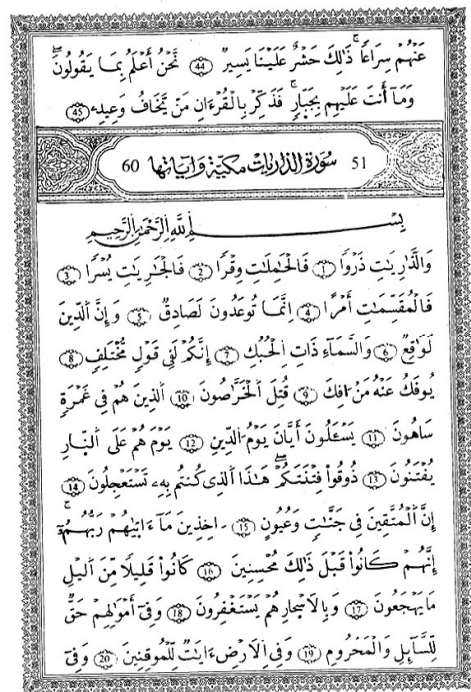 عَنْهُمْ سِرَاعاً ذَٰلِكَ حَشْرٌ عَلَيْنَا يَسِيرٌ 44 نَّحْنُ أَعْلَمُ بِمَا يَقُولُونَ
وَمَا أَنتَ عَلَيْهِم بِجَبَّارٍ فَذَكِّرْ بِالْقُرْءَانِ مَن يَخَافُ وَعِيدِۦ 45
51 سُورَةُ الذَّارِيَات مَكِّيَّة وَءَايَاتُهَا 60
بِسْمِ اللَّهِ الرَّحْمَٰنِ الرَّحِيمِ
وَالذَّارِيَٰتِ ذَرْواً 1 فَالْحَٰمِلَٰتِ وِقْراً 2 فَالْجَٰرِيَٰتِ يُسْراً 3
فَالْمُقَسِّمَٰتِ أَمْراً 4 اِنَّمَا تُوعَدُونَ لَصَادِقٌ 5 وَإِنَّ الدِّينَ
لَوَٰقِعٌ 6 وَالسَّمَاءِ ذَاتِ الْحُبُكِ 7 إِنَّكُمْ لَفِي قَوْلٍ مُّخْتَلِفٍ 8
يُوفَكُ عَنْهُ مَنُ افِكَ 9 قُتِلَ الْخَرَّٰصُونَ 10 الَّذِينَ هُمْ فِي غَمْرَةٍ
سَاهُونَ 11 يَسْـَٔلُونَ أَيَّانَ يَوْمُ الدِّينِ 12 يَوْمَ هُمْ عَلَى النَّارِ
يُفْتَنُونَ 13 ذُوقُواْ فِتْنَتَكُمْ هَٰذَا الَّذِي كُنتُم بِهِۦ تَسْتَعْجِلُونَ 14
إِنَّ الْمُتَّقِينَ فِي جَنَّٰتٍ وَعُيُونٍ 15 ـاخِذِينَ مَا ءَاتَيٰهُمْ رَبُّهُمُۥ
إِنَّهُمْ كَانُواْ قَبْلَ ذَٰلِكَ مُحْسِنِينَ 16 كَانُواْ قَلِيلًا مِّنَ اَلَّيْلِ
مَا يَهْجَعُونَ 17 وَبِالَاسْحارِ هُمْ يَسْتَغْفِرُونَ 18 وَفِي أَمْوَٰلِهِمْ حَقٌّ
لِّلسَّآئِلِ وَالْمَحْرُومِ 19 وَفِي اِلَارْضِ ءَايَٰتٌ لِّلْمُوقِنِينَ 20 وَفِي